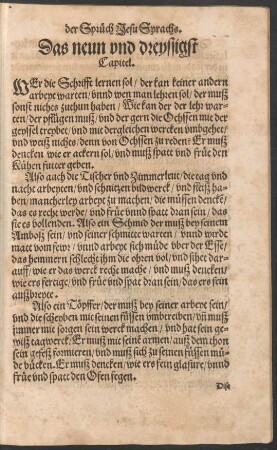 der Sprüch Jesu Syrachs.
Das neun vnd dreyssigst
Capitel.
WEr die Schrifft lernen sol / der kan keiner andern
arbeyt warten / vnnd wen man lehren sol / der muß
sonst nichs zuthun haben / Wie kan der der lehr war-
ten / der pflügen muß / vnd der gern die Ochssen mit der
geyssel treybet / vnd mit dergleichen wercken vmbgehet /
vnd weiß nichts / denn von Ochssen zu reden: Er muß
dencken wie er ackern sol / vnd muß spatt vnd früe den
Kühen futter geben.
Also auch die Tischer vnd Zimmerleut / die tag vnd
nacht arbeyten / vnd schnitzen bildwerck / vnd fleiß ha-
ben / mancherley arbeyt zu machen / die müssen dencke /
das es recht werde / vnd früe vnnd spatt dran sein / das
sie es vollenden. Also ein Schmid der muß bey seinem
Amboß sein / vnd seiner schmitte warten / vnnd wirdt
matt vom fewr / vnnd arbeyt sich müde vber der Esse /
das hemmern schlecht ihm die ohren vol / vnd sihet dar-
auff / wie er das werck recht mache / vnd muß dencken /
wie ers fertige / vnd früe vnd spat dran sein / das ers sein
außbreyte.
Also ein Töpffer / der muß bey seiner arbeyt sein /
vnd die scheyben mit seinen füssen vmbtreiben / vñ muß
jmmer mit sorgen sein werck machen / vnd hat sein ge-
wiß tagwerck / Er muß mit seine armen / auß dem thon
sein gefeß formieren / vnd muß sich zu seinen füssen mü-
de bücken. Er muß dencken / wie ers fein glasüre / vnnd
früe vnd spatt den Ofen fegen.
Dise